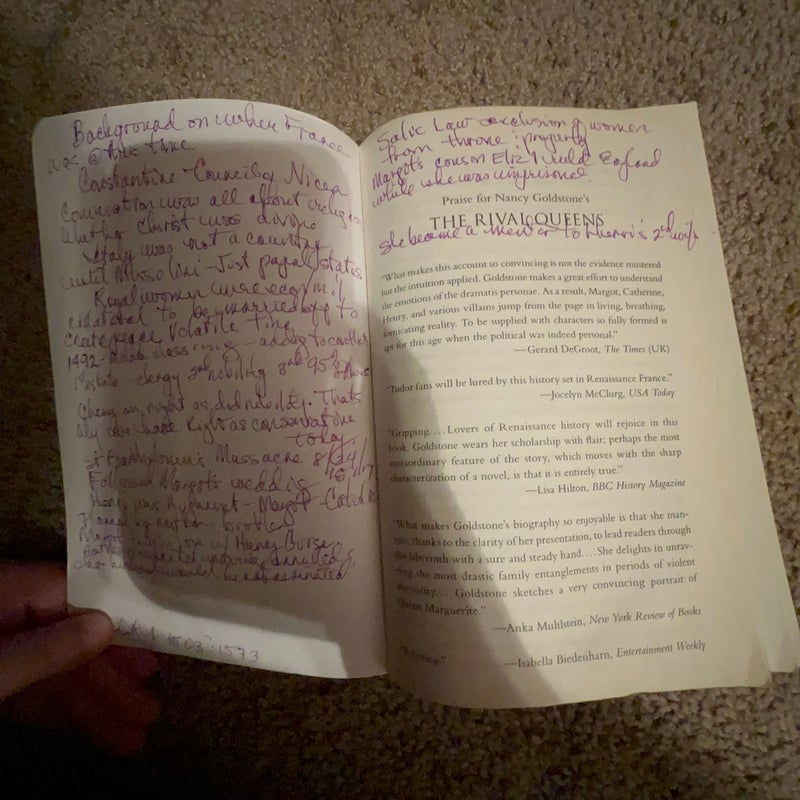 Background on where France
was @ this time
Constantine Council of Nicea
Conversation was all about religion
whether Christ was divine
Italy was not a country
until Mussolini - Just papal states
Royal women were
to be married off to
create peace Volatile time
1492 -
clergy 2nd nobility 3rd 95%
right as did nobility. That's
why
today
St Bartholomew's Massacre 8/24/
Following Margot's wedding
Henry was Huguenot - Margot Catholic
Planned by mother & brother
Margot in love w/ Henry Guise
annulled &
her husband would be assassinated
1503-1573
Salic Law exclusion of women
from throne & property
Margot's cousin Eliz 1 ruled England
while she was imprisoned.
Praise for Nancy Goldstone's
THE RIVAL QUEENS
She became a mentor to Henri's 2nd wife
"What makes this account so convincing is not the evidence mustered
but the intuition applied. Goldstone makes a great effort to understand
the emotions of the dramatis personae. As a result, Margot, Catherine,
Henry, and various villains jump from the page in living, breathing,
fornicating reality. To be supplied with characters so fully formed is
apt for this age when the political was indeed personal."
—Gerard DeGroot, The Times (UK)
"Tudor fans will be lured by this history set in Renaissance France."
—Jocelyn McClurg, USA Today
"Gripping.... Lovers of Renaissance history will rejoice in this
book. Goldstone wears her scholarship with flair; perhaps the most
extraordinary feature of the story, which moves with the sharp
characterization of a novel, is that it is entirely true."
—Lisa Hilton, BBC History Magazine
"What makes Goldstone's biography so enjoyable is that she man-
ages, thanks to the clarity of her presentation, to lead readers through
this labyrinth with a sure and steady hand.... She delights in unrav-
eling the most drastic family entanglements in periods of violent
insecurity.... Goldstone sketches a very convincing portrait of
Queen Marguerite."
—Anka Muhlstein, New York Review of Books
—Isabella Biedenharn, Entertainment Weekly